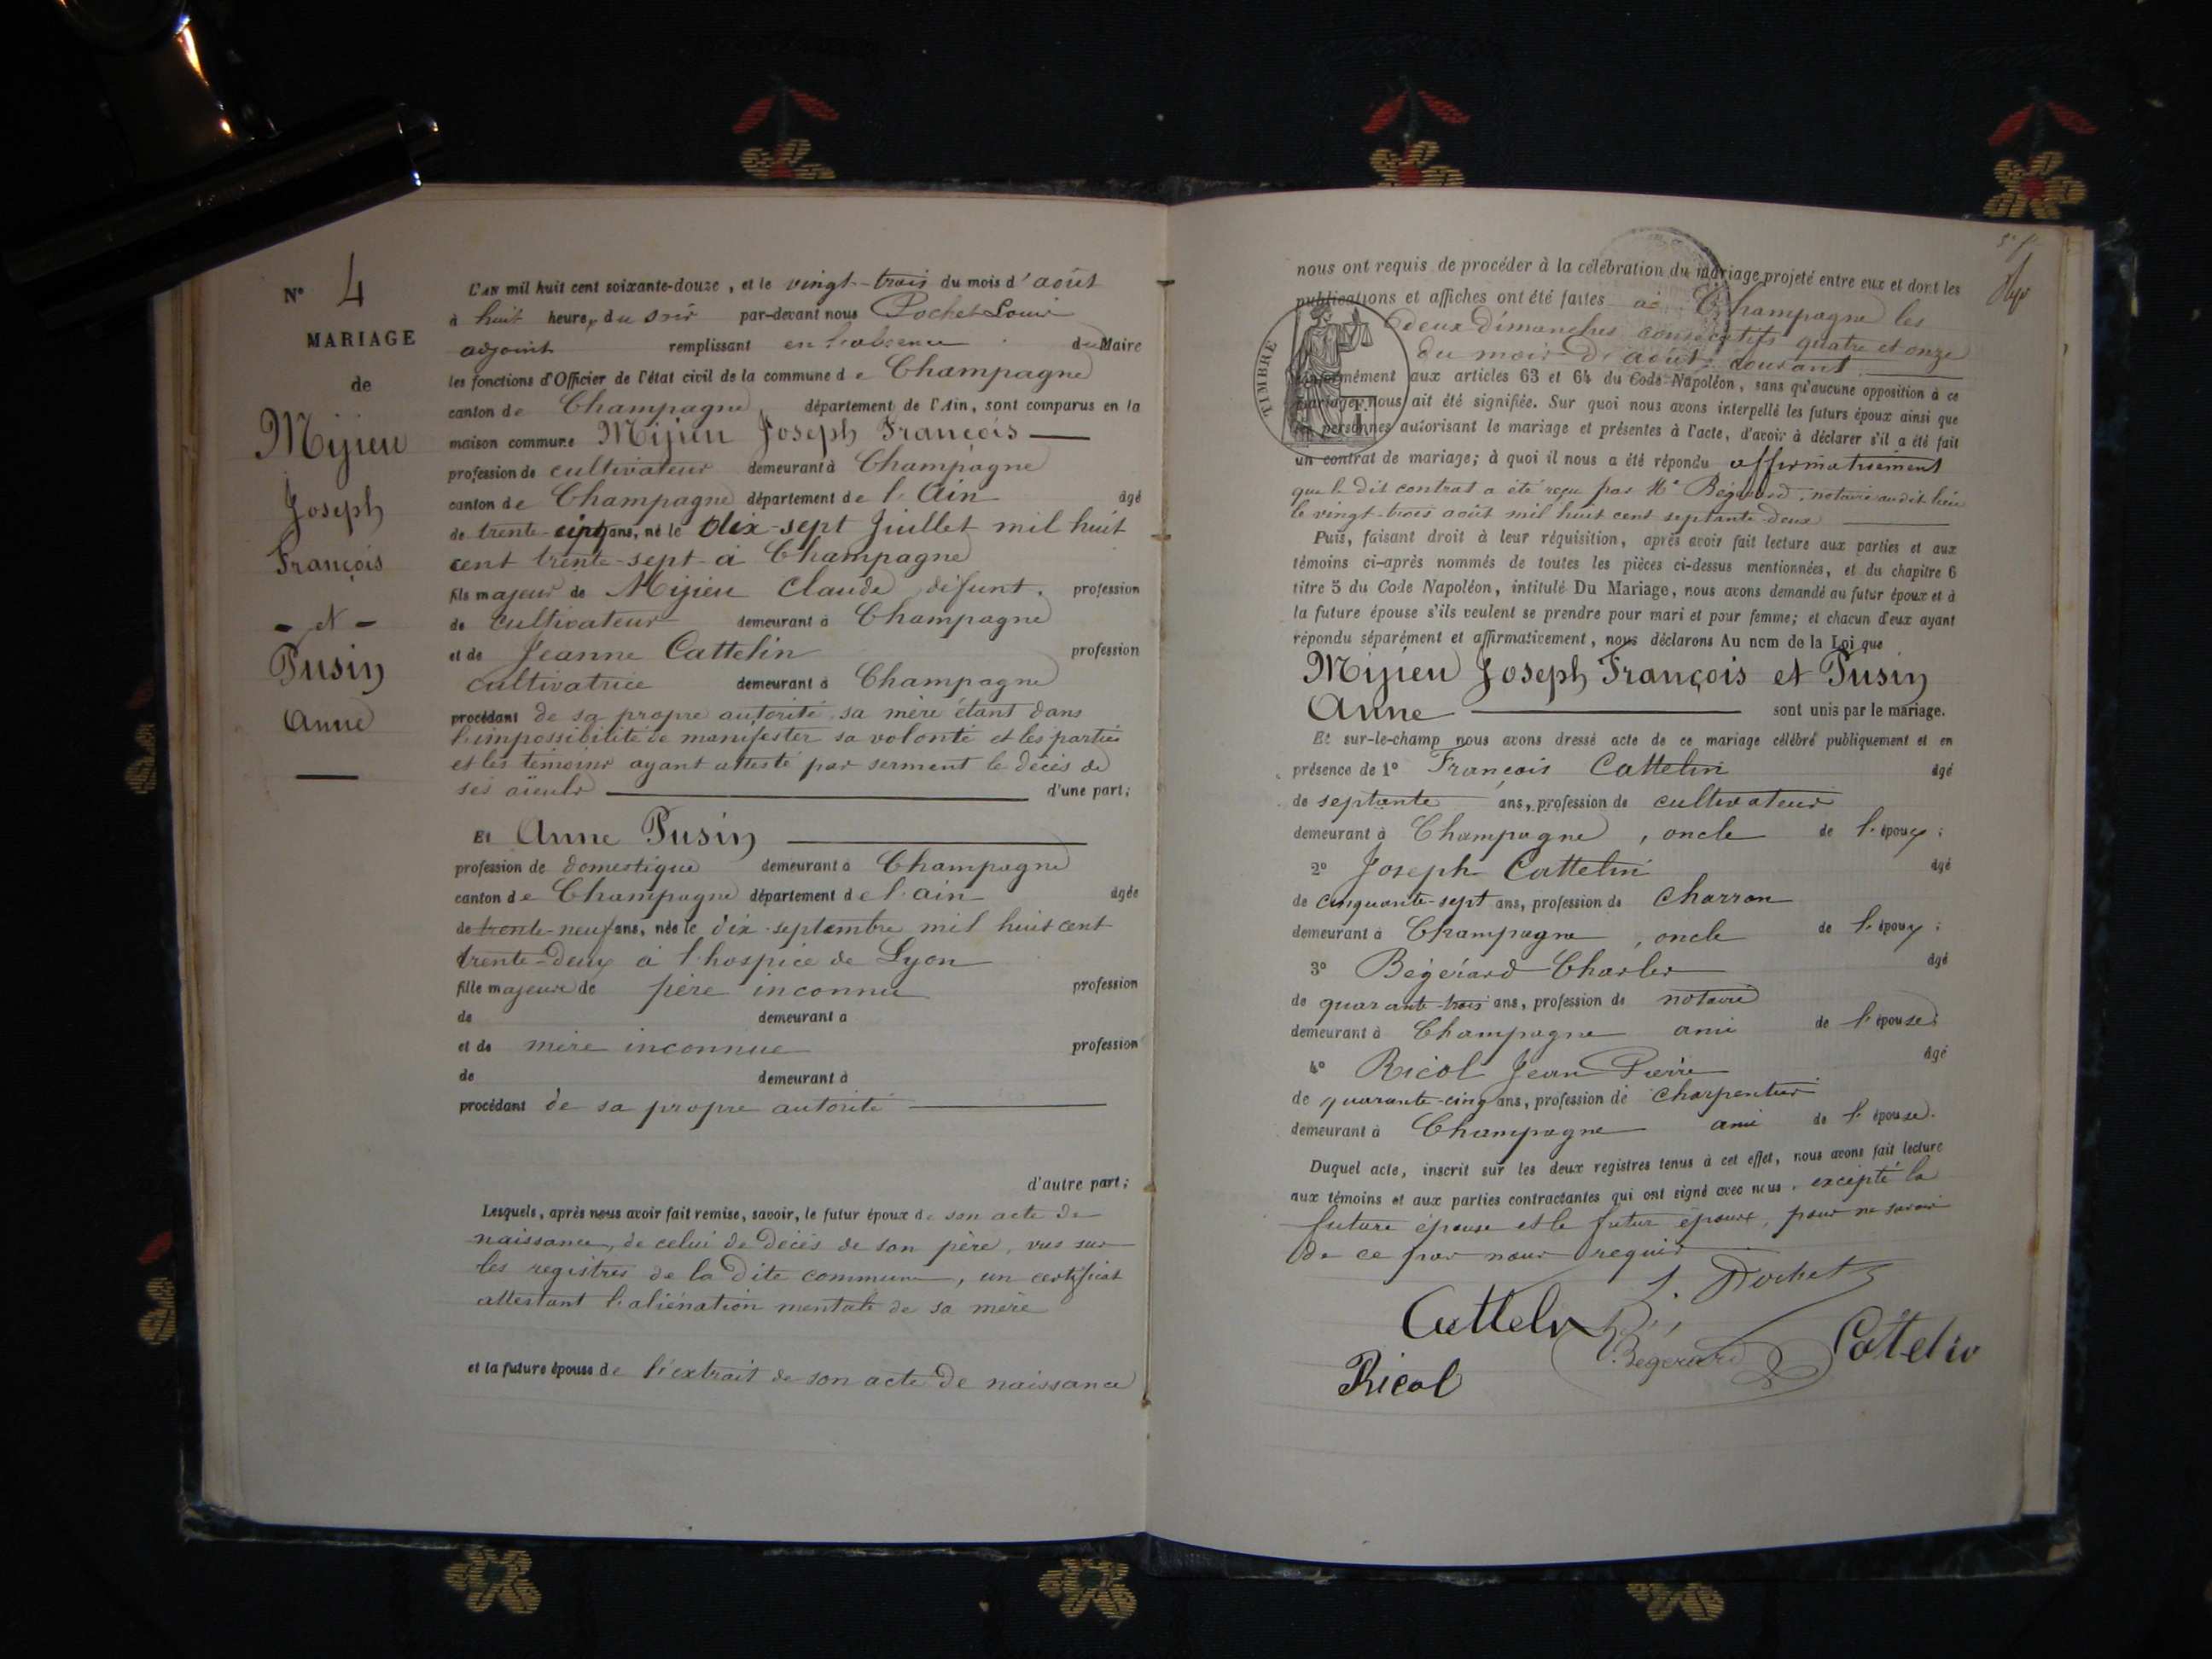 N° 4
MARIAGE
de
Mijieu
Joseph
François
- et -
Pusin
Anne
L'AN mil huit cent soixante-douze, et le vingt-trois du mois d'août
à huit heures du soir par-devant nous Pochet Louis
adjoint remplissant en l'absence du Maire
les fonctions d'Officier de l'état civil de la commune de Champagne
canton de Champagne département de l'Ain, sont comparus en la
maison commune Mijieu Joseph François
profession de cultivateur demeurant à Champagne
canton de Champagne département de l'Ain âgé
de trente-cinq ans, né le dix-sept Juillet mil huit
cent trente-sept à Champagne
fils majeur de Mijieu Claude défunt, profession
de cultivateur demeurant à Champagne
et de Jeanne Cattelin profession
cultivatrice demeurant à Champagne
procédant de sa propre autorité, sa mère étant dans
l'impossibilité de manifester sa volonté et les parties
et les témoins ayant attesté par serment le décès de
ses aïeuls d'une part;
Et Anne Pusin
profession de domestique demeurant à Champagne
canton de Champagne département de l'ain âgée
de trente-neuf ans, née le dix septembre mil huit cent
trente-deux à l'hospice de Lyon
fille majeure de père inconnu profession
de demeurant à
et de mère inconnue profession
de demeurant à
procédant de sa propre autorité
d'autre part;
Lesquels, après nous avoir fait remise, savoir, le futur époux de son acte de
naissance, de celui de décès de son père, vus sur
les registres de la dite commune, un certificat
attestant l'aliénation mentale de sa mère
et la future épouse de l'extrait de son acte de naissance
nous ont requis de procéder à la célébration du mariage projeté entre eux et dont les
publications et affiches ont été faites à Champagne les
deux dimanches consécutifs quatre et onze
du mois d'août courant
TIMBRE
conformément aux articles 63 et 64 du Code Napoléon, sans qu'aucune opposition à ce
mariage nous ait été signifiée. Sur quoi nous avons interpellé les futurs époux ainsi que
les personnes autorisant le mariage et présentes à l'acte, d'avoir à déclarer s'il a été fait
un contrat de mariage; à quoi il nous a été répondu affirmativement
que le dit contrat a été reçu par Me Bégérard, notaire audit lieu
le vingt-trois août mil huit cent septante-deux
Puis, faisant droit à leur réquisition, après avoir fait lecture aux parties et aux
témoins ci-après nommés de toutes les pièces ci-dessus mentionnées, et du chapitre 6
titre 5 du Code Napoléon, intitulé Du Mariage, nous avons demandé au futur époux et à
la future épouse s'ils veulent se prendre pour mari et pour femme; et chacun d'eux ayant
répondu séparément et affirmativement, nous déclarons Au nom de la Loi que
Mijieu Joseph François et Pusin
Anne sont unis par le mariage.
Et sur-le-champ nous avons dressé acte de ce mariage célébré publiquement et en
présence de 1° François Cattelin âgé
de septante ans, profession de cultivateur
demeurant à Champagne, oncle de l'époux;
2° Joseph Cattelin âgé
de cinquante-sept ans, profession de charron
demeurant à Champagne, oncle de l'époux;
3° Bégérard Charles âgé
de quarante-trois ans, profession de notaire
demeurant à Champagne ami de l'épouse
4° Ricol Jean Pierre âgé
de quarante-cinq ans, profession de charpentier
demeurant à Champagne ami de l'épouse.
Duquel acte, inscrit sur les deux registres tenus à cet effet, nous avons fait lecture
aux témoins et aux parties contractantes qui ont signé avec nous, excepté la
future épouse et le futur époux, pour ne savoir
de ce par nous requis
L. Pochet
Cattelin
Bégérard
Cattelin
Ricol